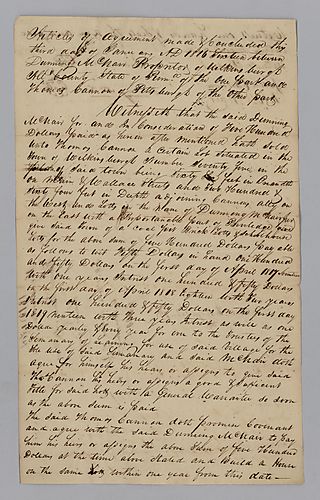 Articles of agreement made & Concluded this
third day of January AD 1816 Sixteen between
Dunning McNair Proprietor of Wilkinsburgh
County State of of the One part and
Thomas Cannon of Pittsburgh of the Other part
Witnesseth that the said Dunning
McNair for and in Consideration of Five Hundred
Dollars paid as herein after mentioned Hath Sold
unto Thomas Cannon a Certain Lot Situated in the
Town of Wilkinsburgh Number Twenty in the
of Said town being feet in breadth
on Main & Wallace Streets and Two Hundred &
Sixty four feet in Depth adjoining Canners alley on
the West and Lots of the of Dunning McNair
on the East with a of
give said Town of a Coal pit
Lots for the above Sum of five Hundred Dollars Payable
as follows to wit Fifty Dollars in hand One Hundred
and fifty Dollars on the first day of April 1817
With one years Interest One hundred & fifty Dollars
on the first day of April 1818 Eighteen with two years
Interest One Hundred & fifty Dollars on the first day
1819 nineteen with three years Interest as well as one
Dollar Yearly & Every Year for Ever to the Trustees of the
Semenary of Learning for use of Said Village for the
the use of Said Semenary and said McNair doth
agree for himself his heirs or assigns to give said
Tho Cannon his heirs or assigns a good & Sufficient
Title for Said Lot with a Waranttee so soon
as the above Sum is paid
The said Thomas Cannon doth Covenant
and agree with the Said Dunning McNair to Pay
him his heirs or assigns the above Sum of five Hundred
Dollars at the time above Stated and Build a House
on the Same Lot within one year from this date